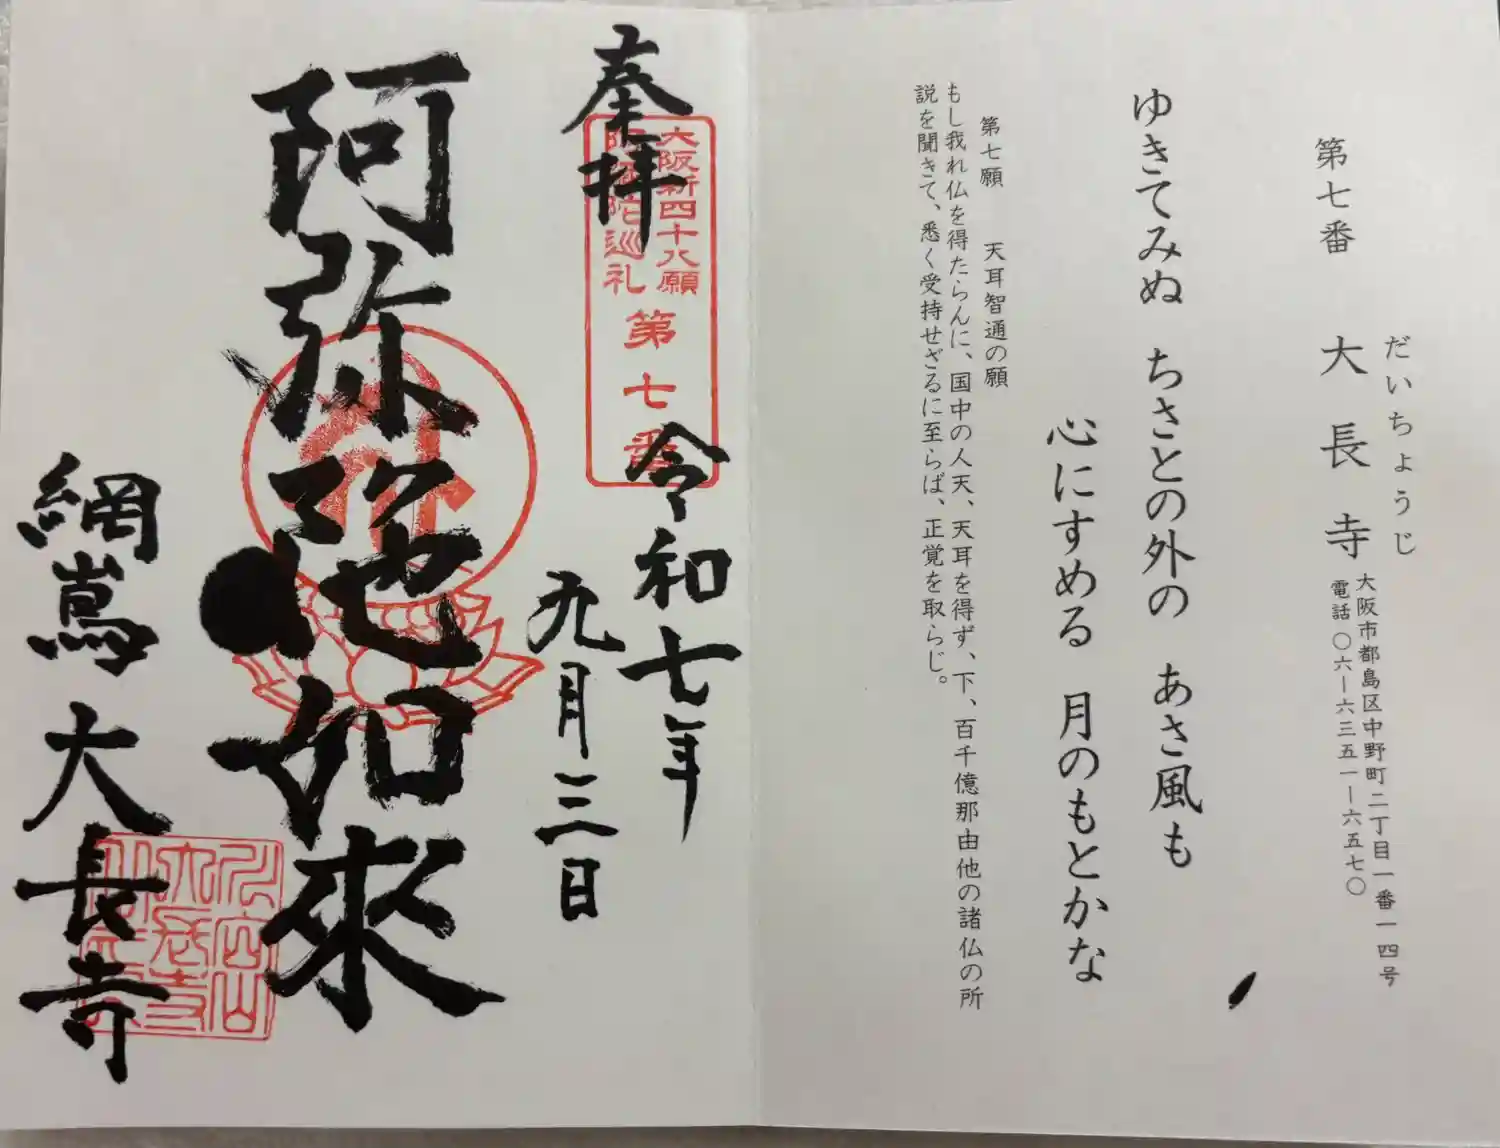 だいちょうじ
第七番 大長寺
大阪市都島区中野町二丁目一番一四号
電話〇六ー六三五一ー六五七〇
ゆきてみぬ ちさとの外の あさ風も
心にすめる 月のもとかな
第七願 天耳智通の願
もし我れ仏を得たらんに、国中の人天、天耳を得ず、下、百千億那由他の諸仏の所
説を聞きて、悉く受持せざるに至らば、正覚を取らじ。
奉拝
大阪新四十八願
阿弥陀巡礼
第七番
令和七年
九月三日
阿弥陀如来
網嶌 大長寺